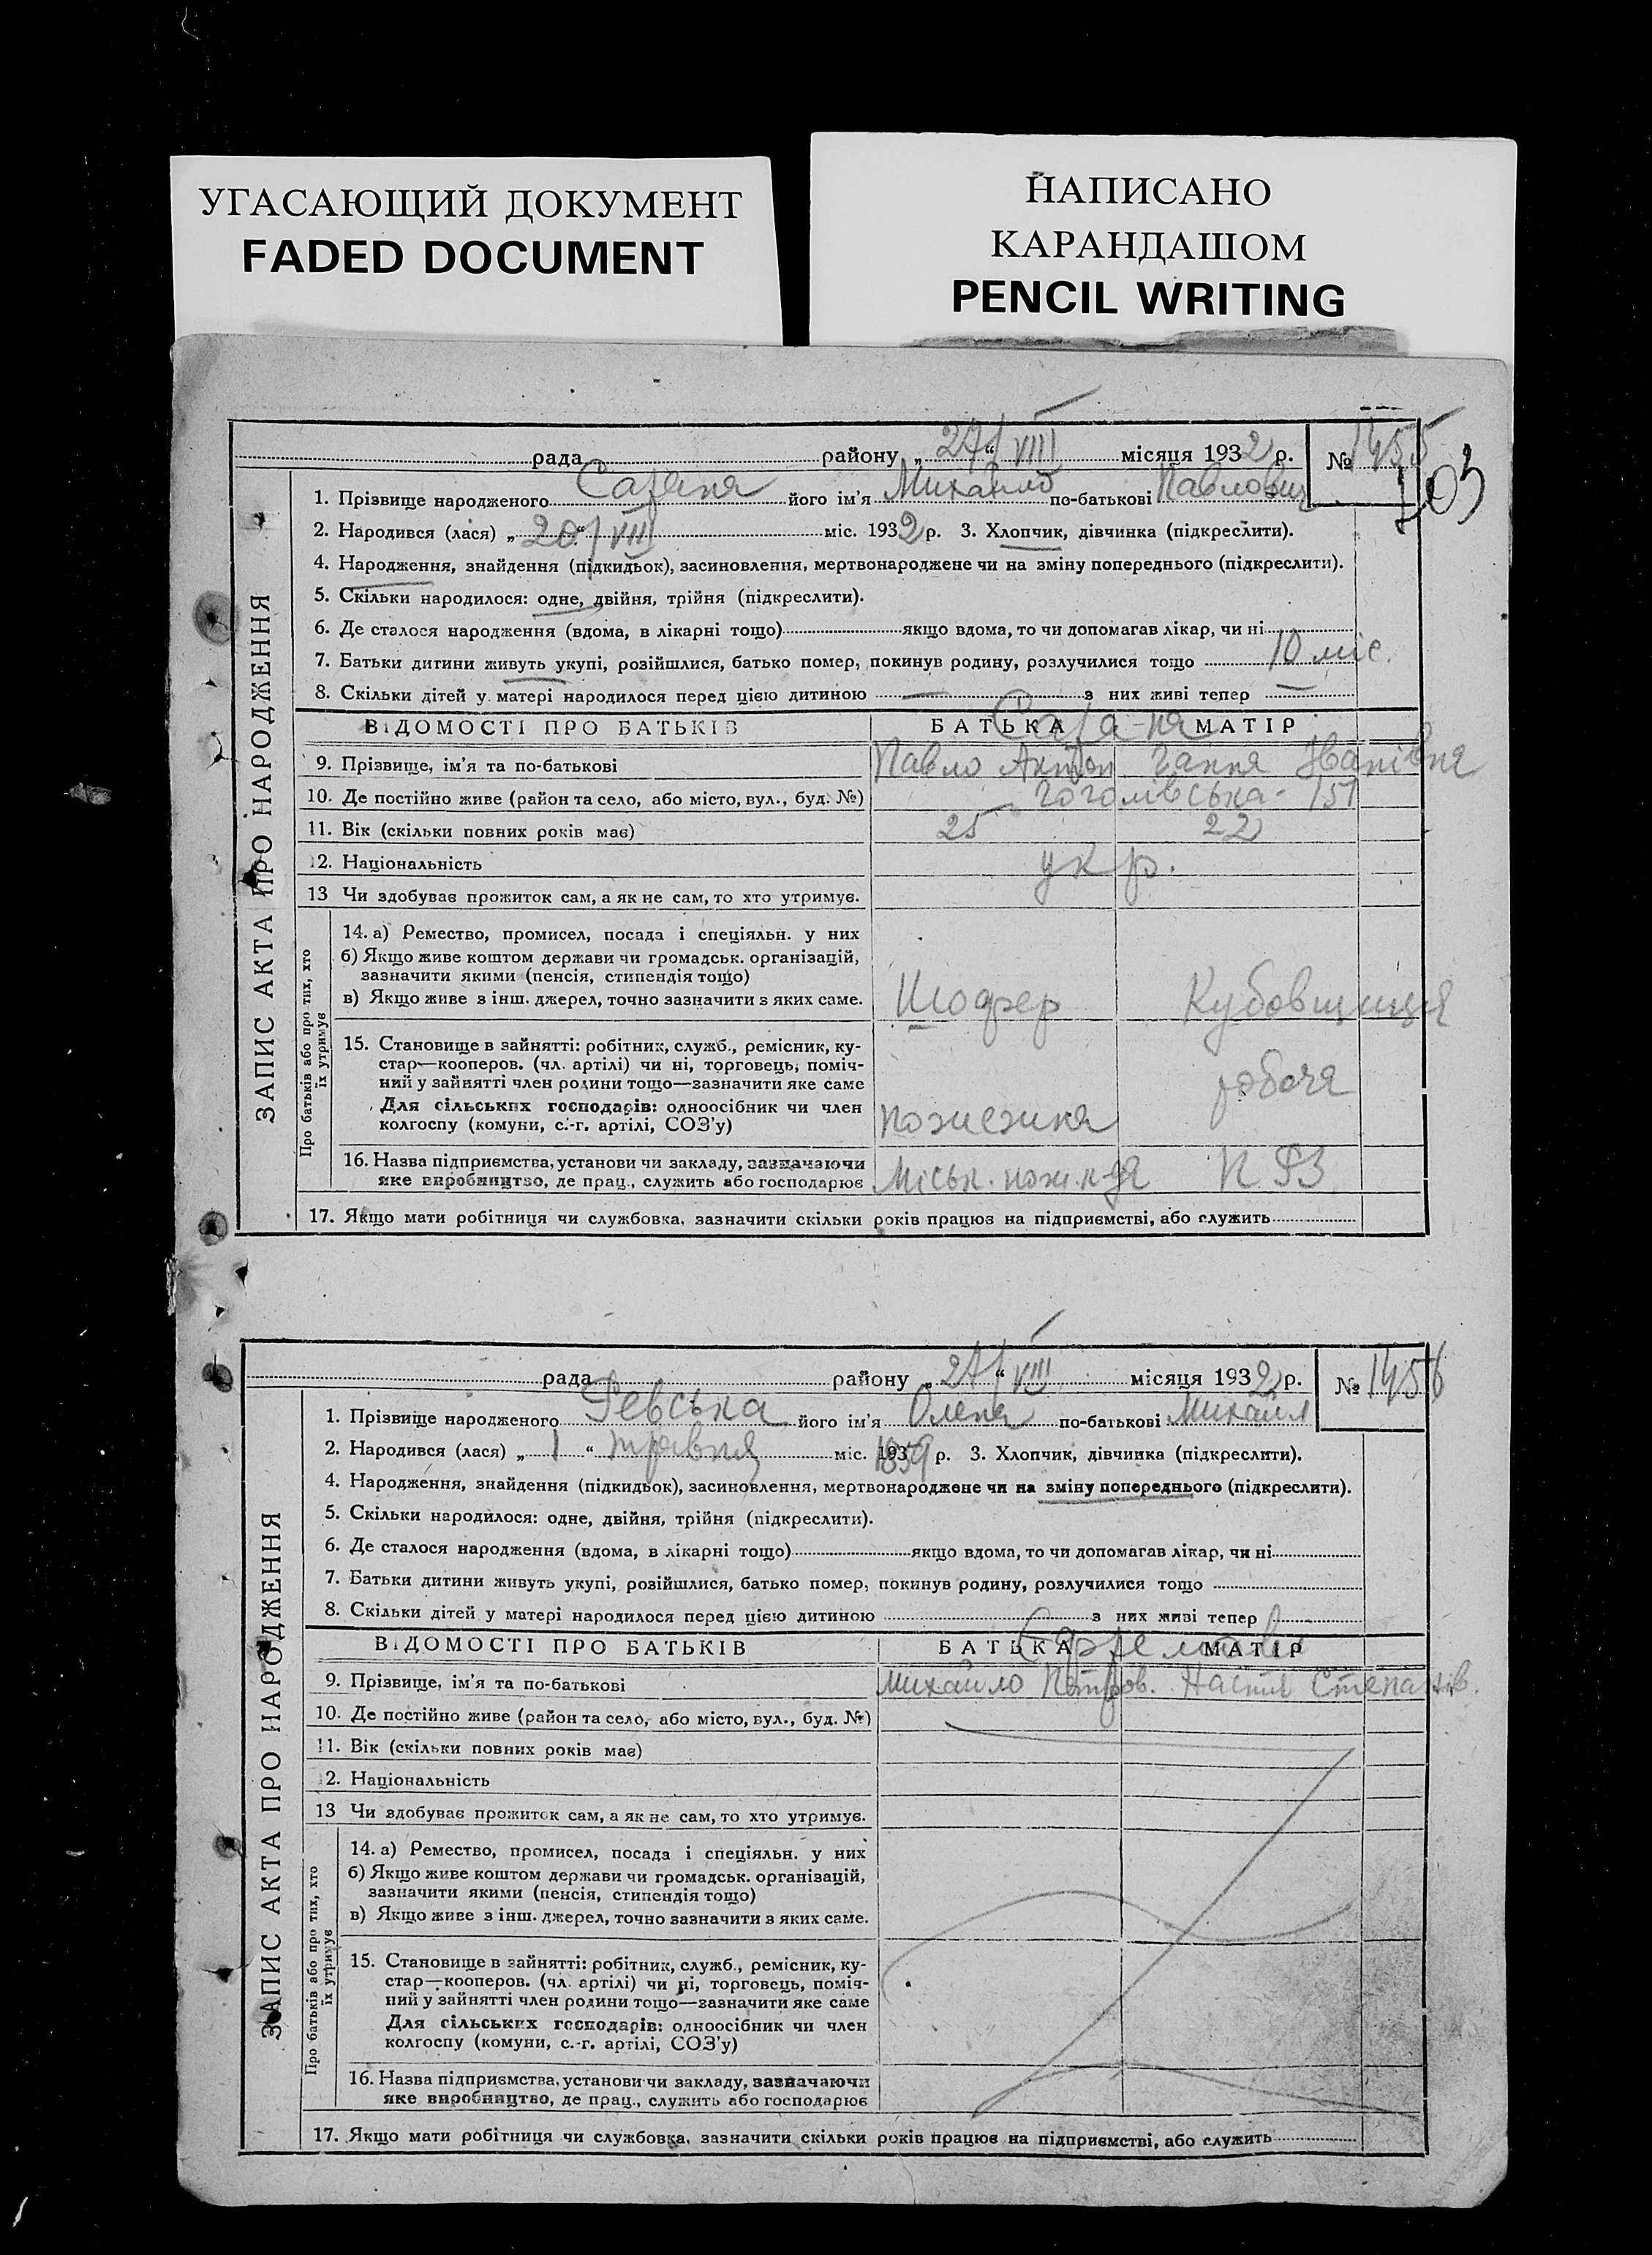 УГАСАЮЩИЙ ДОКУМЕНТ
FADED DOCUMENT
НАПИСАНО
КАРАНДАШОМ
PENCIL WRITING
рада району „27/VIII“ місяця 1932 р. № 1455
103
ЗАПИС АКТА ПРО НАРОДЖЕННЯ
1. Прізвище народженого його ім'я Михайло по-батькові Павлович
2. Народився (лася) „20/VIII“ міс. 1932 р. 3. Хлопчик, дівчинка (підкреслити).
4. Народження, знайдення (підкидьок), засиновлення, мертвонароджене чи на зміну попереднього (підкреслити).
5. Скільки народилося: одне, двійня, трійня (підкреслити).
6. Де сталося народження (вдома, в лікарні тощо) якщо вдома, то чи допомагав лікар, чи ні
7. Батьки дитини живуть укупі, розійшлися, батько помер, покинув родину, розлучилися тощо 10 міс.
8. Скільки дітей у матері народилося перед цією дитиною — з них живі тепер —
ВІДОМОСТІ ПРО БАТЬКІВ БАТЬКА МАТІР
9. Прізвище, ім'я та по-батькові Павло Антон Ганна Іванівна
10. Де постійно живе (район та село, або місто, вул., буд. №) Гоголівська - 151
11. Вік (скільки повних років має) 25 22
12. Національність укр.
13 Чи здобуває прожиток сам, а як не сам, то хто утримує.
Про батьків або про тих, хто їх утримує
14. а) Ремество, промисел, посада і спеціяльн. у них
б) Якщо живе коштом держави чи громадськ. організацій,
зазначити якими (пенсія, стипендія тощо)
в) Якщо живе з інш. джерел, точно зазначити з яких саме. Шофер Кубовщиця
15. Становище в зайнятті: робітник, служб., ремісник, ку-
стар—кооперов. (чл. артілі) чи ні, торговець, поміч-
ний у зайнятті член родини тощо—зазначити яке саме робоча
Для сільських господарів: одноосібник чи член
колгоспу (комуни, с.-г. артілі, СОЗ'у)
16. Назва підприємства, установи чи закладу, зазначаючи
яке виробництво, де прац., служить або господарює Міськ. пож. к-да
17. Якщо мати робітниця чи службовка, зазначити скільки років працює на підприємстві, або служить
рада району „27/VIII“ місяця 1932 р. № 1456
ЗАПИС АКТА ПРО НАРОДЖЕННЯ
1. Прізвище народженого Ревська його ім'я Олена по-батькові Михайл
2. Народився (лася) „1“ травня міс. 1859 р. 3. Хлопчик, дівчинка (підкреслити).
4. Народження, знайдення (підкидьок), засиновлення, мертвонароджене чи на зміну попереднього (підкреслити).
5. Скільки народилося: одне, двійня, трійня (підкреслити).
6. Де сталося народження (вдома, в лікарні тощо) якщо вдома, то чи допомагав лікар, чи ні
7. Батьки дитини живуть укупі, розійшлися, батько помер, покинув родину, розлучилися тощо
8. Скільки дітей у матері народилося перед цією дитиною з них живі тепер
ВІДОМОСТІ ПРО БАТЬКІВ БАТЬКА МАТІР
9. Прізвище, ім'я та по-батькові Михайло Петров. Настя Степанів.
10. Де постійно живе (район та село, або місто, вул., буд. №)
11. Вік (скільки повних років має)
12. Національність
13 Чи здобуває прожиток сам, а як не сам, то хто утримує.
Про батьків або про тих, хто їх утримує
14. а) Ремество, промисел, посада і спеціяльн. у них
б) Якщо живе коштом держави чи громадськ. організацій,
зазначити якими (пенсія, стипендія тощо)
в) Якщо живе з інш. джерел, точно зазначити з яких саме.
15. Становище в зайнятті: робітник, служб., ремісник, ку-
стар—кооперов. (чл. артілі) чи ні, торговець, поміч-
ний у зайнятті член родини тощо—зазначити яке саме
Для сільських господарів: одноосібник чи член
колгоспу (комуни, с.-г. артілі, СОЗ'у)
16. Назва підприємства, установи чи закладу, зазначаючи
яке виробництво, де прац., служить або господарює
17. Якщо мати робітниця чи службовка, зазначити скільки років працює на підприємстві, або служить